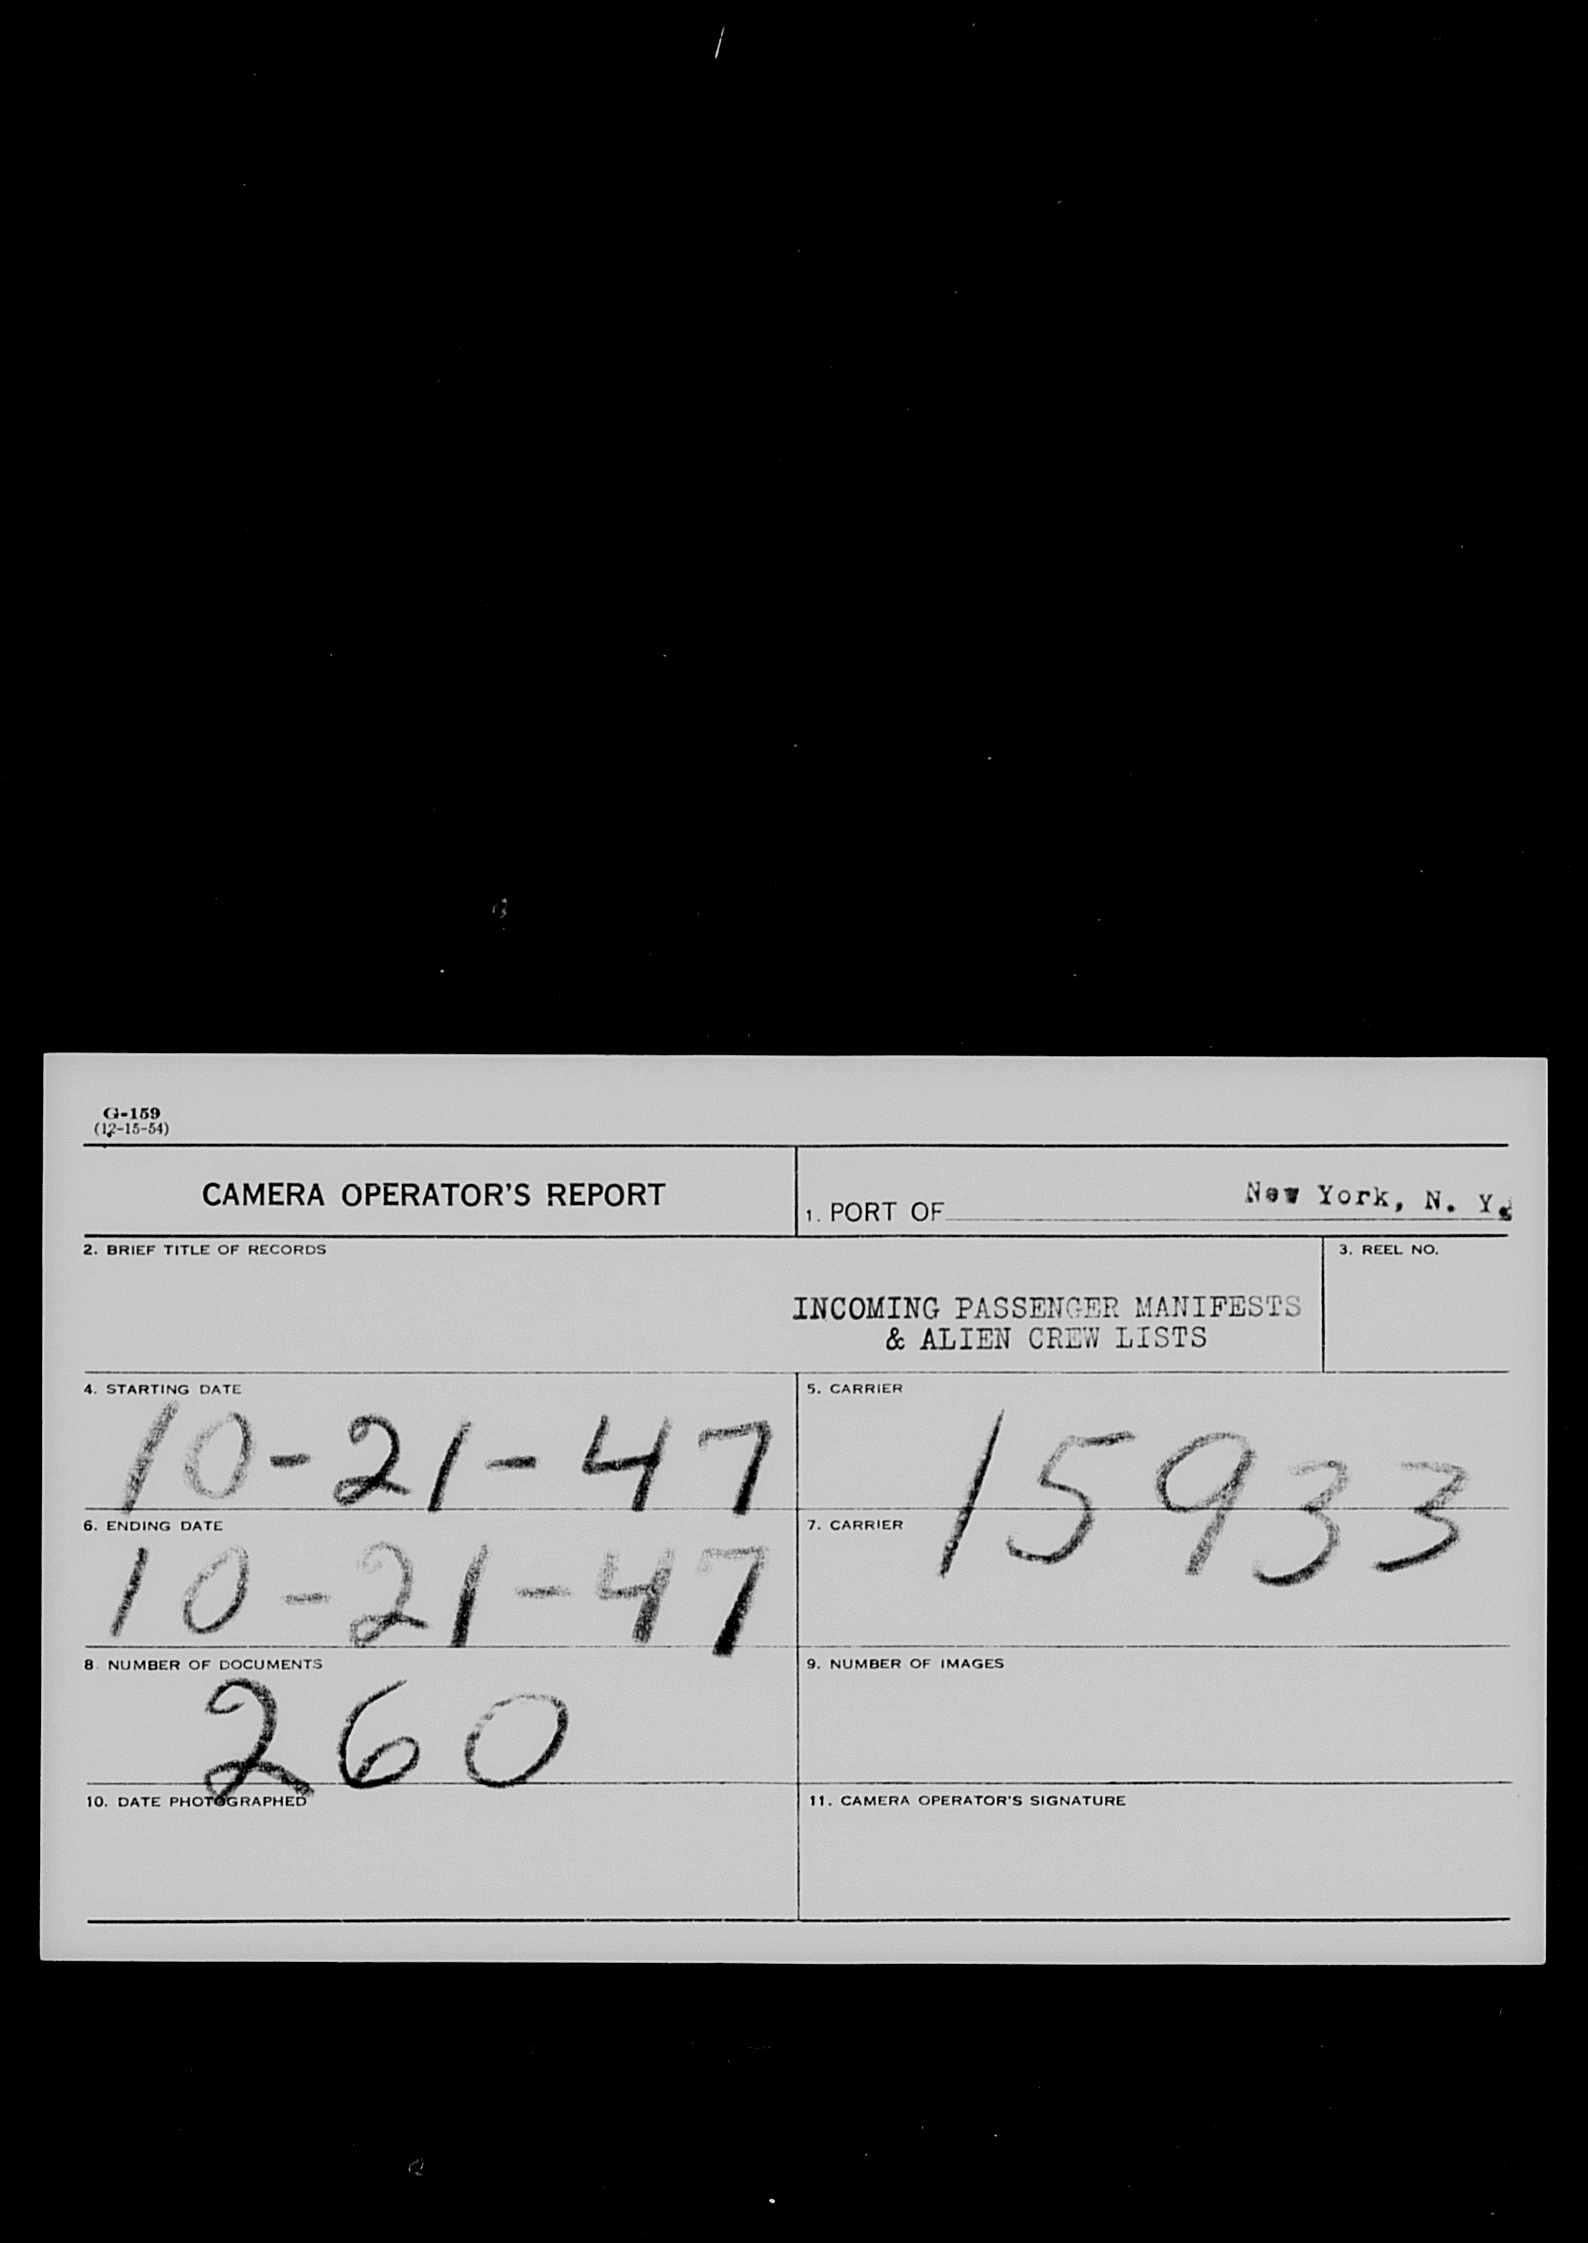 G-159
(12-15-54)
CAMERA OPERATOR'S REPORT
1. PORT OF New York, N. Y.
2. BRIEF TITLE OF RECORDS
3. REEL NO.
INCOMING PASSENGER MANIFESTS
& ALIEN CREW LISTS
4. STARTING DATE
10-21-47
5. CARRIER
15933
6. ENDING DATE
10-21-47
7. CARRIER
8. NUMBER OF DOCUMENTS
260
9. NUMBER OF IMAGES
10. DATE PHOTOGRAPHED
11. CAMERA OPERATOR'S SIGNATURE